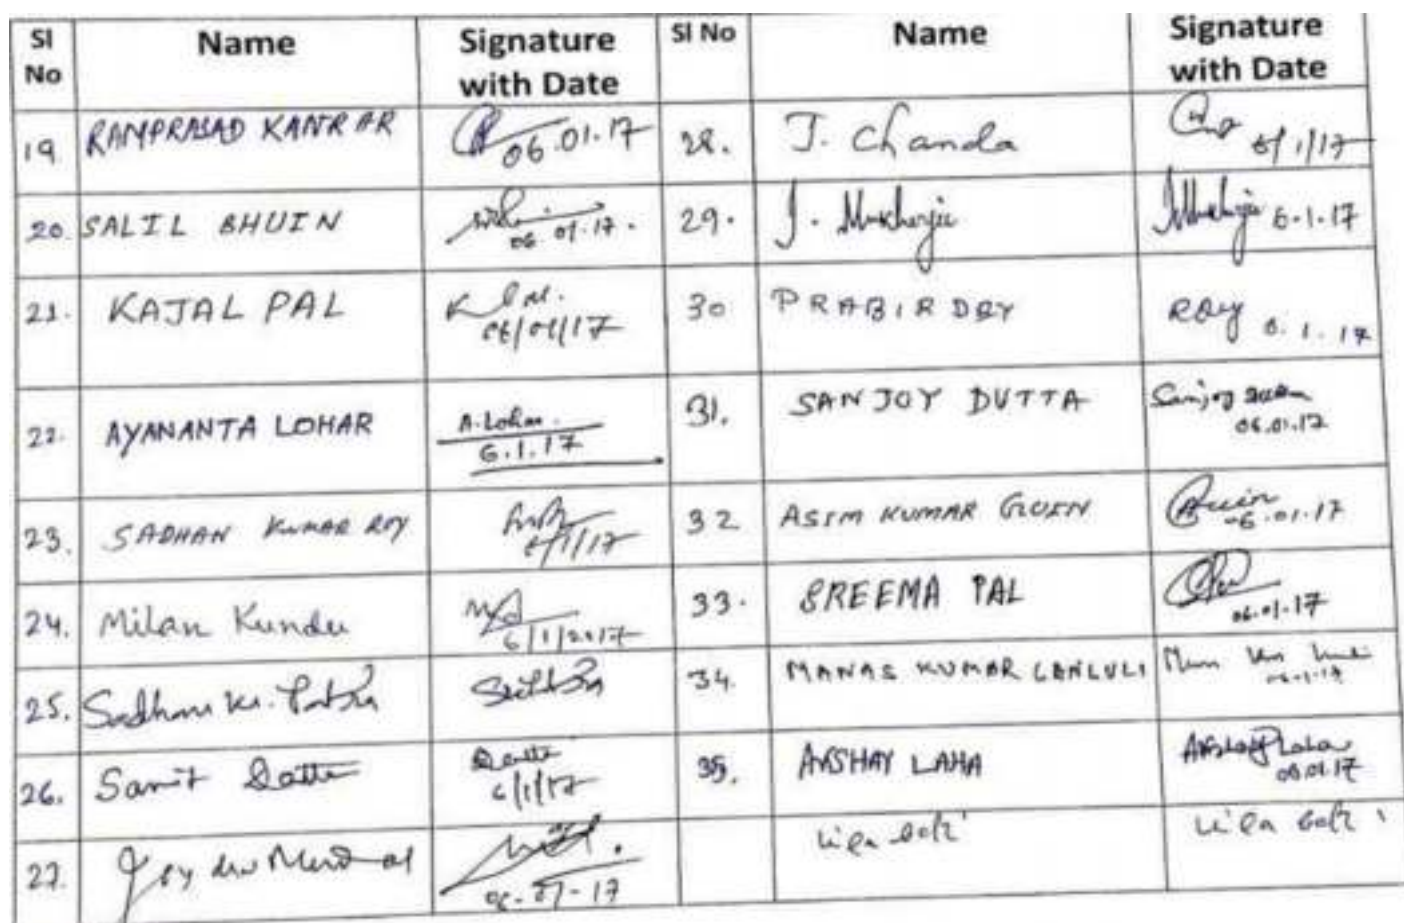 Sl No Name Signature with Date Sl No Name Signature with Date
19 RAMPRASAD KANRAR 06.01.17 28. J. Chanda 6/1/17
20. SALIL BHUIN 06.01.17. 29. J. Mukherjee JMukherjee 6.1.17
21. KAJAL PAL K Pal. 06/01/17 30 PRABIR DEY 6.1.17
22. AYANANTA LOHAR A. Lohar. 6.1.17 31. SANJOY DUTTA Sanjoy Dutta 06.01.17
23. SADHAN KUMAR ROY 6/1/17 32 ASIM KUMAR GUIN Guin 06.01.17
24. Milan Kundu 6/1/2017 33. SREEMA PAL 06.01.17
25. Sadhan Kr. Patra 34. MANAS KUMAR
26. Samit Datta Datta 6/1/17 35. AKSHAY LAHA Akshay Laha 06.01.17
27. Joy dev Mondal 06-01-17